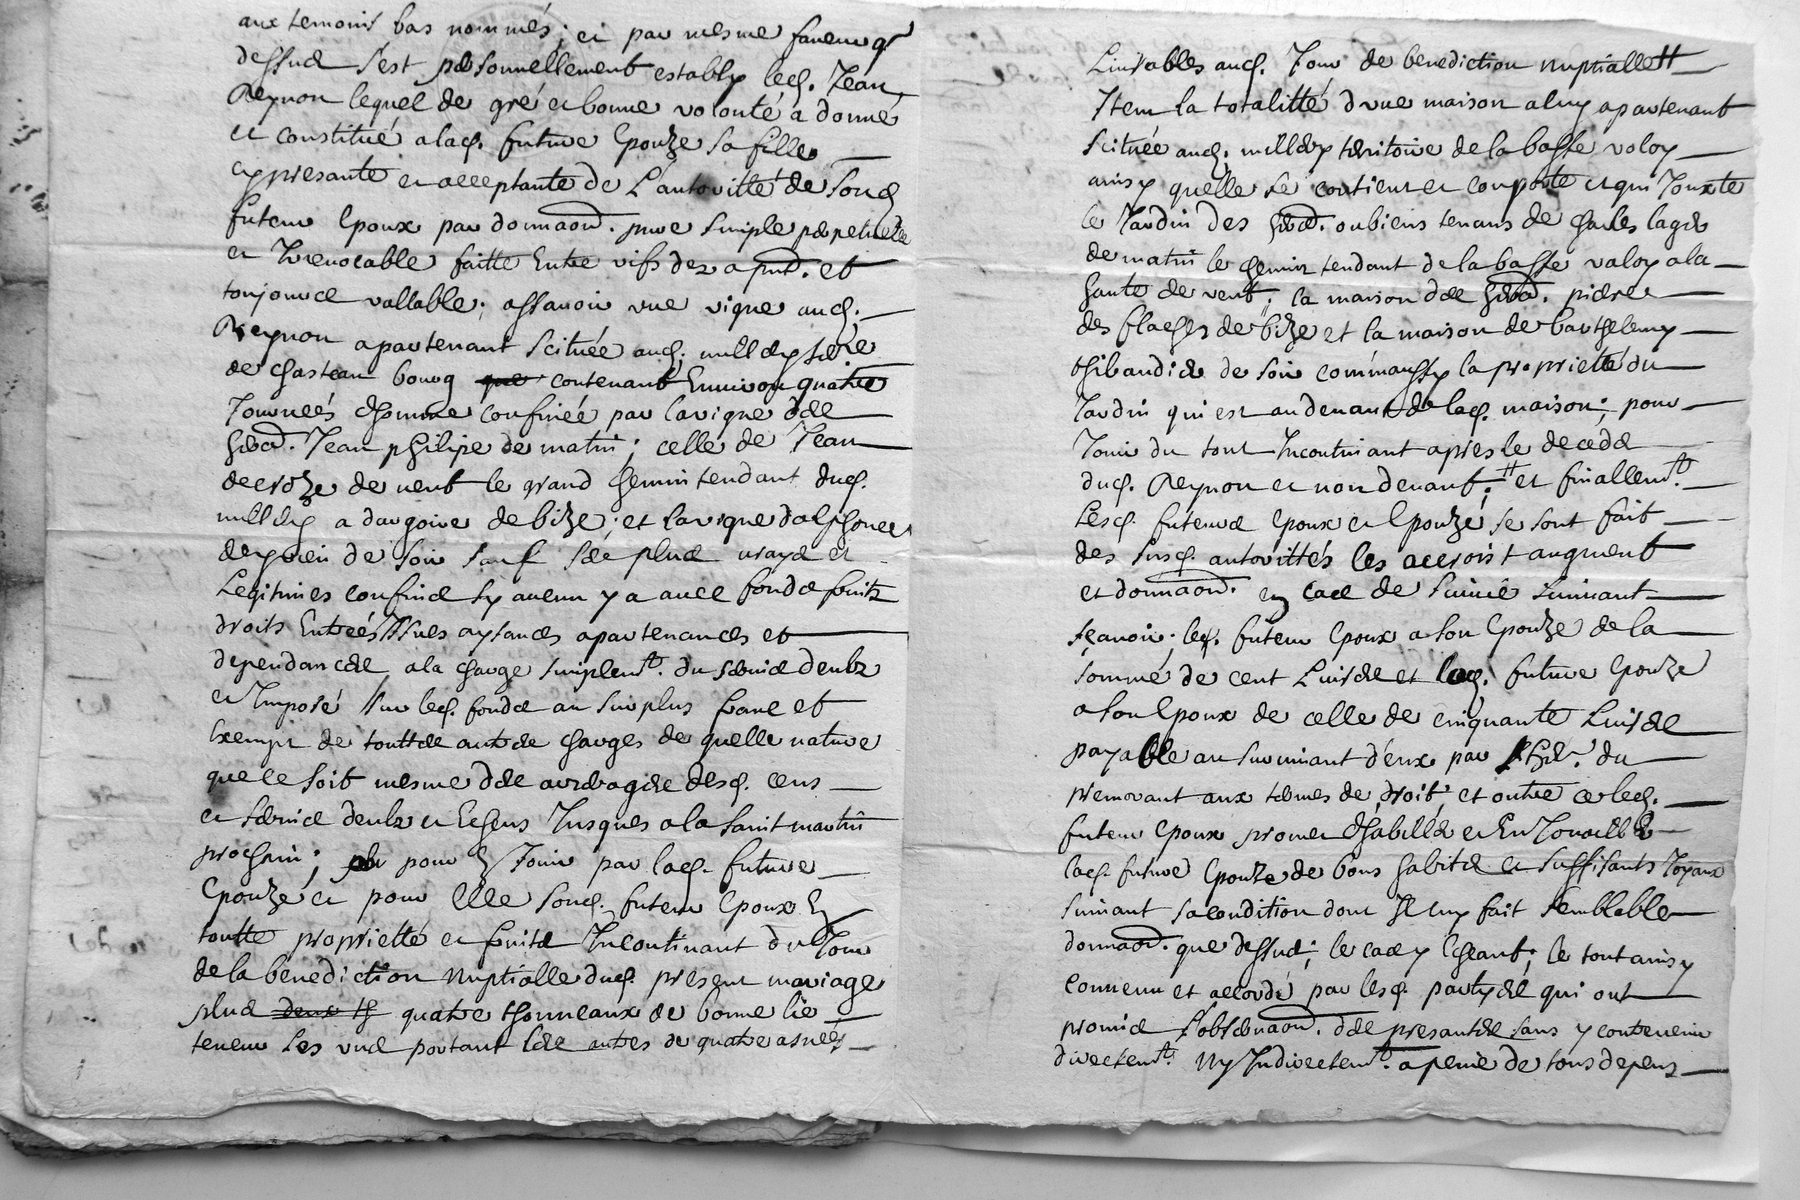 aux temoins bas nommés; et par mesme faveur q
dessus s'est personnellement estably led. Jean
Reynon lequel de gré et bonne volonté a donné
et constitué a lad. future Epouze sa fille
cy presante et acceptante de L'autoritté de sond
futeur Epoux par donnaon. pure simple perpetuelle
et Irrevocable faitte Entre vifs des a pnt. et
toujours vallable; assavoir une vigne aud.
Reynon apartenant Scituée aud. millery
de chasteau bourg contenant Environ quatre
Journées d'homme confinée par la vigne des
her. Jean philipe de matin; celle de Jean
decroze de vent le grand chemin tendant dud.
millery a dargoire de bize; et la vigne d'alphonce
de soir sauf ses plus vrays et
Legitimes confins sy aucun y a avec fonds fruits
droits Entrées Issues aysances apartenances et
dependances, a la charge simplemt. du service deubz
et Imposé sur led. fonds au surplus franc et
Exempt de touttes autres charges de quelle nature
que ce soit mesme des arrerages desd. cens
et service deubz et Echeus Jusques a la saint martin
prochain; pour En Jouir par lad. future
Epouze et pour Elle sond. futeur Epoux En
toutte proprietté et fruits Incontinant du Jour
de la benediction Nuptialle dud. present mariage
plus deux th quatre thonneaux de bonne lie
teneur Les uns portant les autres de quatre asnées
Livrables aud. Jour de benediction nuptialle #
Item la totalitté d'une maison a luy apartenant
Scituée aud. millery teritoire de la basse valoy
ainsy quelle se contient et comporte et qui Jouxte
le Jardin des her. ou biens tenans de charles lager
de matin le chemin tendant de la basse valoy a la
haute de vent; la maison des her. pierre
des flaches de bize et la maison de barthelemy
thibaudier de soir comm aussy la proprietté du
Jardin qui est au devant de lad. maison; pour
Jouir du tout Incontinant apres le deceds
dud. Reynon et non devant; # et finallemt.
Lesd. futeurs Epoux et Epouze se sont fait
des susd. autorittés les accroist augment
et donnaon. En cas de survie suivant
sçavoir; led. futeur Epoux a son Epouze de la
somme de cent Livres et lad. future Epouze
a son Epoux de celle de cinquante Livres
payable au survivant d'eux par l'her. du
premorant aux termes de droit, et outre ce led.
futeur Epoux promet d'habiller et En Joualler
lad. future Epouze de bons habits et suffisants Joyaux
suivant sa condition dont Il luy fait semblable
donnaon. que dessus; le cas y Echeant; le tout ainsy
convenu et accordé par lesd. partyes qui ont
promis l'observaon. des presantes sans y contrevenir
directemt. Ny Indirectemt. a peine de tous depens